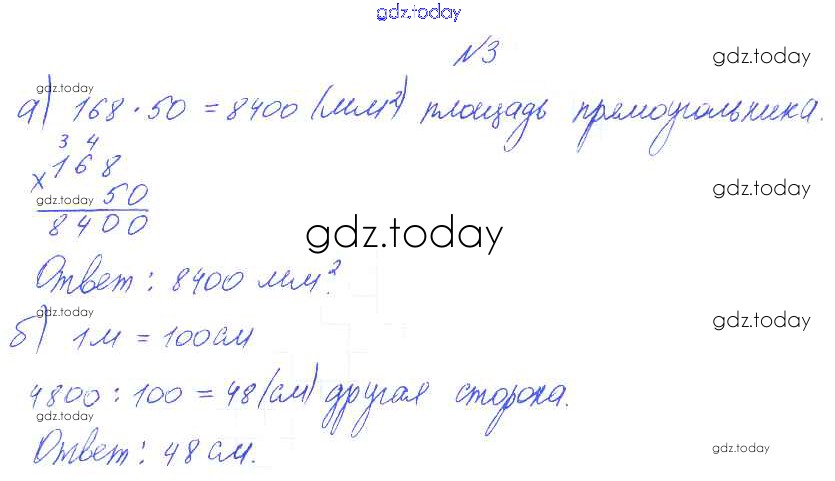 gdz.today
№3
gdz.today
gdz.today
а) 168 · 50 = 8400 (мм²) площадь прямоугольника.
3 4
× 168
gdz.today
gdz.today 50
8400
gdz.today
Ответ: 8400 мм².
gdz.today
gdz.today
б) 1м = 100см
4800 : 100 = 48 (см) другая сторона.
gdz.today
Ответ: 48 см.
gdz.today